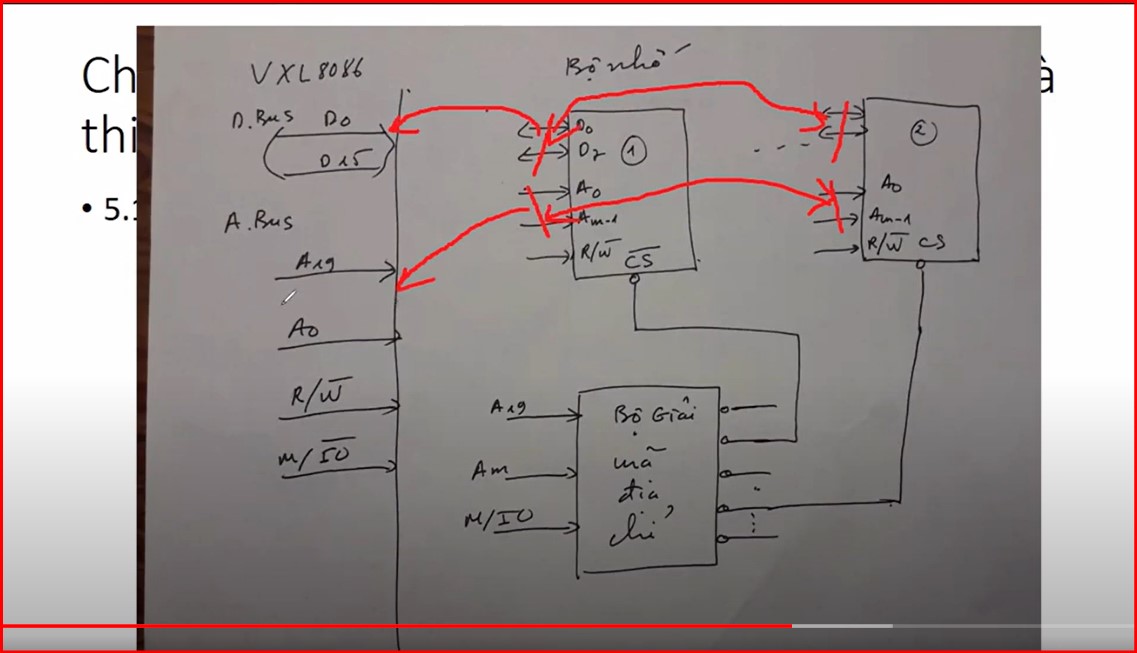 Ch
à
thi
• 5.
VXL8086
Bộ nhớ
D.Bus D0
D15
A.Bus
A19
A0
R/W̅
M/I̅O̅
D0
D7
①
A0
Am-1
R/W̅ C̅S̅
②
A0
Am-1
R/W̅ CS
A19
Am
M/I̅O̅
Bộ Giải
mã
địa
chỉ